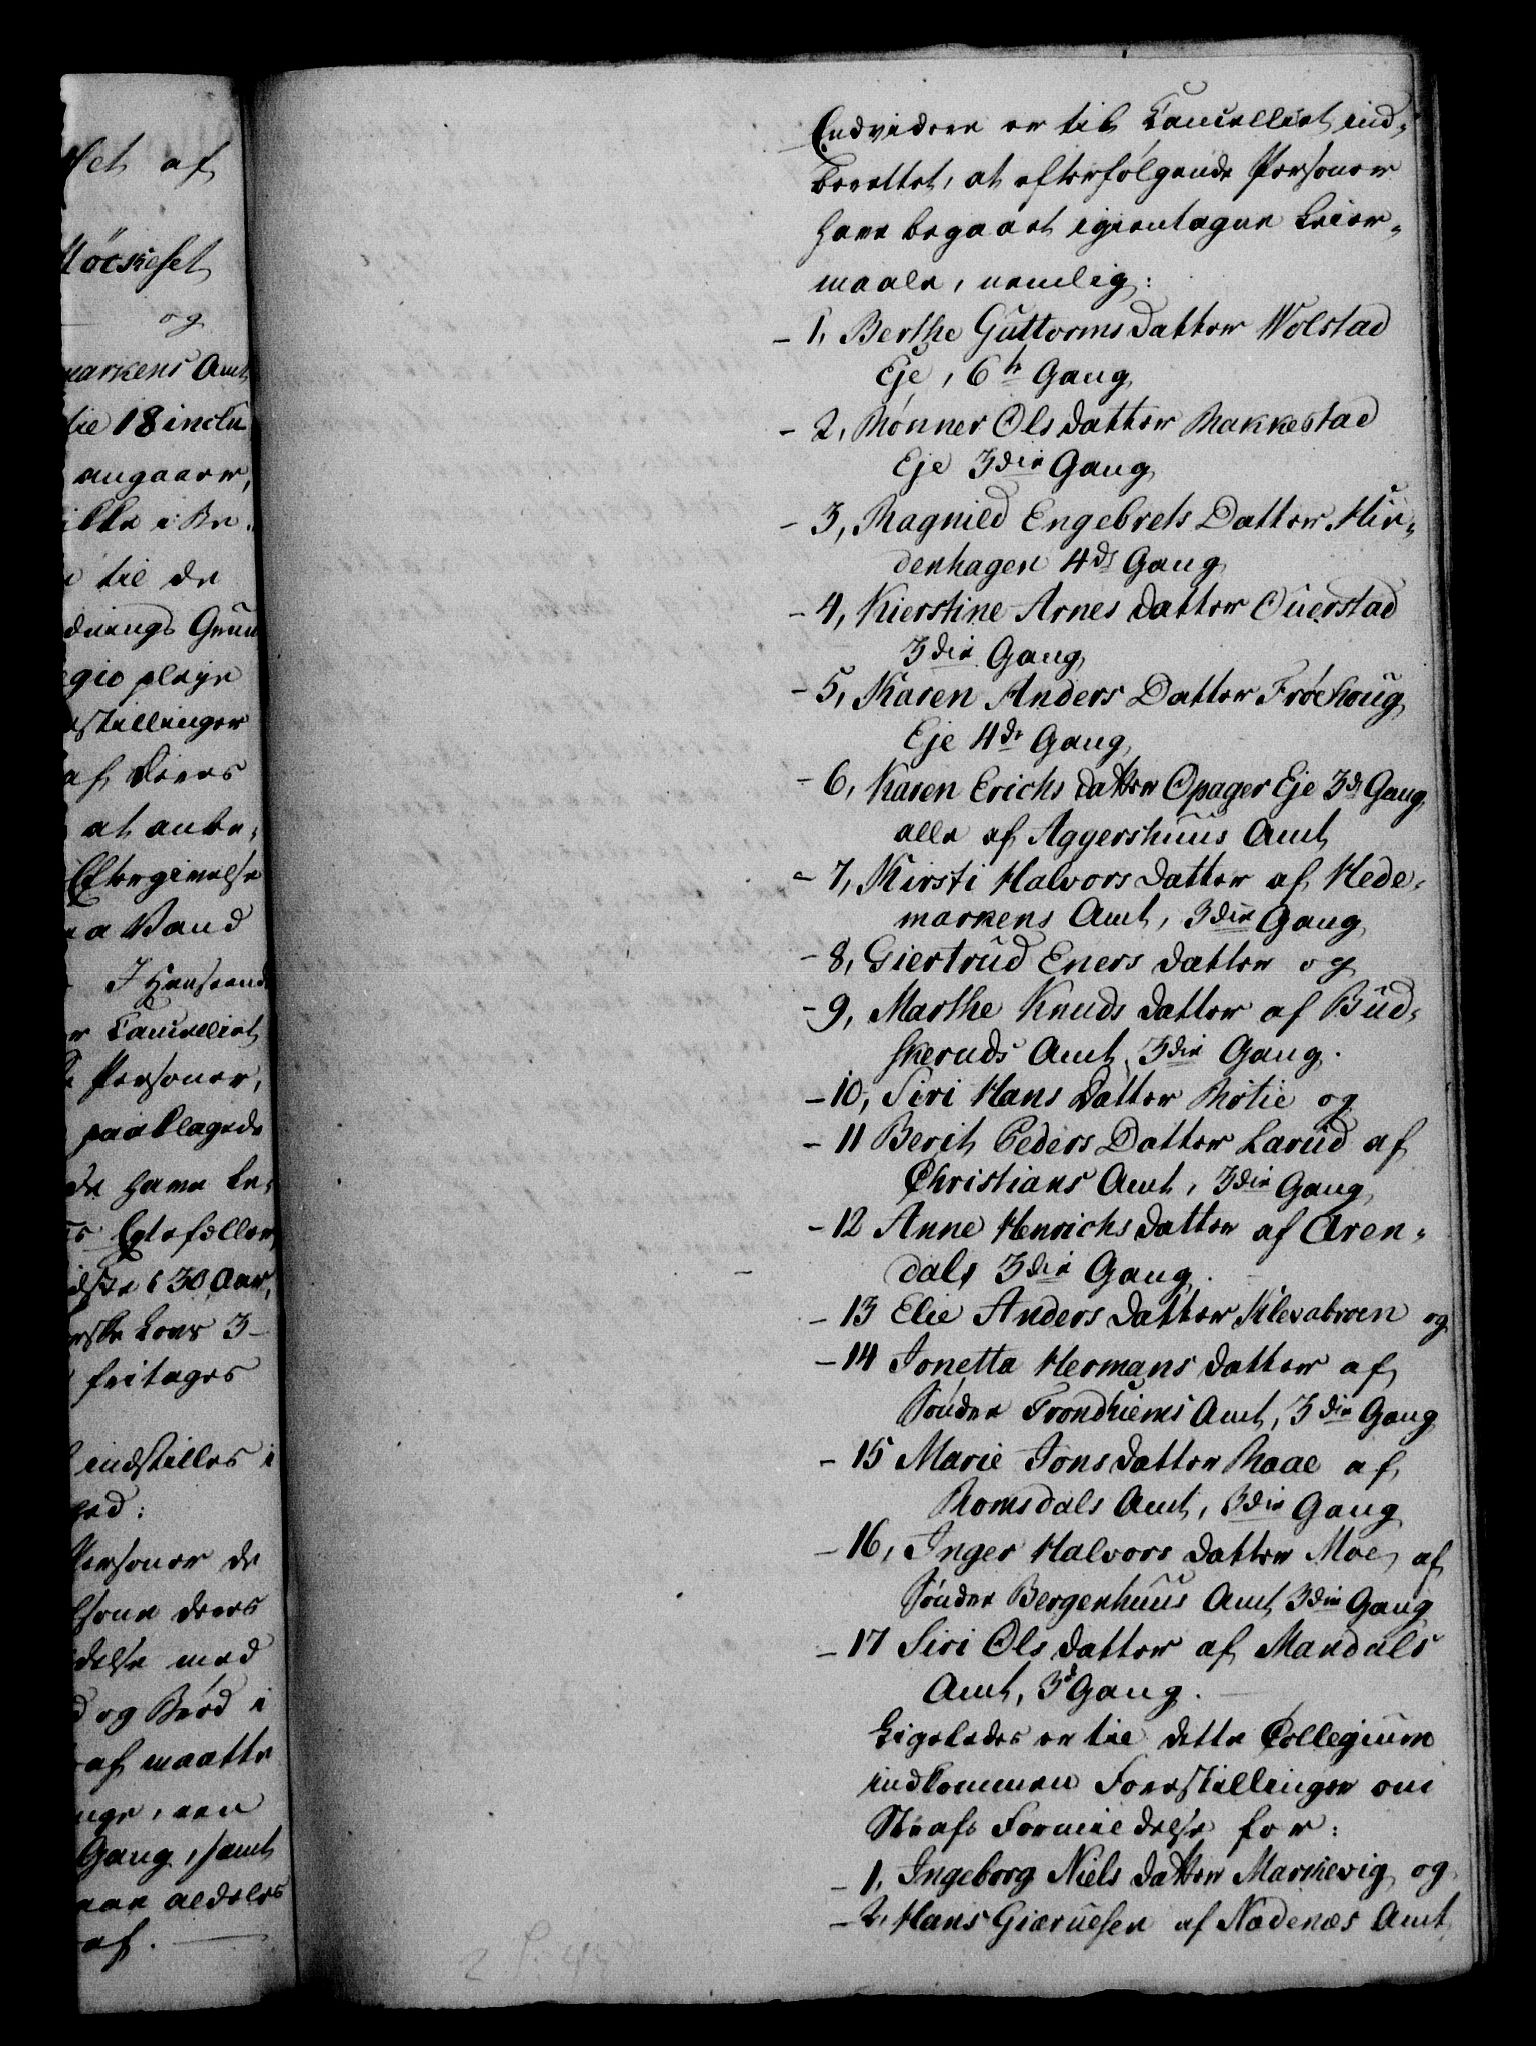 let af
og
markens Amt
tie 18 inclu
angaaer,
ikke i Be-
til de
gie pleye
stillinger
af deres
at anbe-
Eftergivelse
Vand
I Henseende
Cancelliet
Personer,
paaklagede
de have be-
Egtefæller,
30 Aar,
Lovs 3-
fritages
indstilles i
Personer de
deres
delse med
og Brød i
af maatte
Gang, samt
aldeles
af.
Endvidere er til Cancelliet ind-
berettet, at efterfølgende Personer
have begaaet igientagne Leier-
maale, nemlig:
- 1, Berthe Guttorms datter Wolstad
Eje, 6te Gang
- 2, Rønner Ols datter Rakkestad
Eje 3die Gang
- 3, Ragnild Engebrets Datter Hir-
denhagen 4de Gang
- 4, Kierstine Arnes datter Ouerstad
3die Gang,
- 5, Karen Anders Datter Frøehoug
Eje 4de Gang,
- 6, Karen Erichs datter Opager Eje 3de Gang,
alle af Aggershuus Amt
- 7, Kirsti Halvors datter af Hede-
markens Amt, 3die Gang
- 8, Giertrud Eners datter og
- 9, Marthe Knuds datter af Bud-
skeruds Amt, 3die Gang.
- 10, Siri Hans Datter Røtie og
- 11 Berit Peders Datter Larud af
Christians Amt, 3die Gang,
- 12 Anne Henrichs datter af Aren-
dal, 3die Gang.
- 13 Elie Anders datter Klevabroen og
- 14 Jonetta Hermans datter af
Sønder Trondhiems Amt, 3die Gang
- 15 Marie Jons datter Raae af
Romsdals Amt, 3die Gang
- 16, Inger Halvors datter Moe, af
Sønder Bergenhuus Amt 3die Gang
- 17 Siri Ols datter af Mandals
Amt, 3de Gang. -
Ligeledes er til dette Collegium
indkommen Forestillinger om
Strafs Formildelse for:
- 1, Ingeborg Niels datter Markevig og
- 2, Hans Giærulsen af Nedenæs Amt,